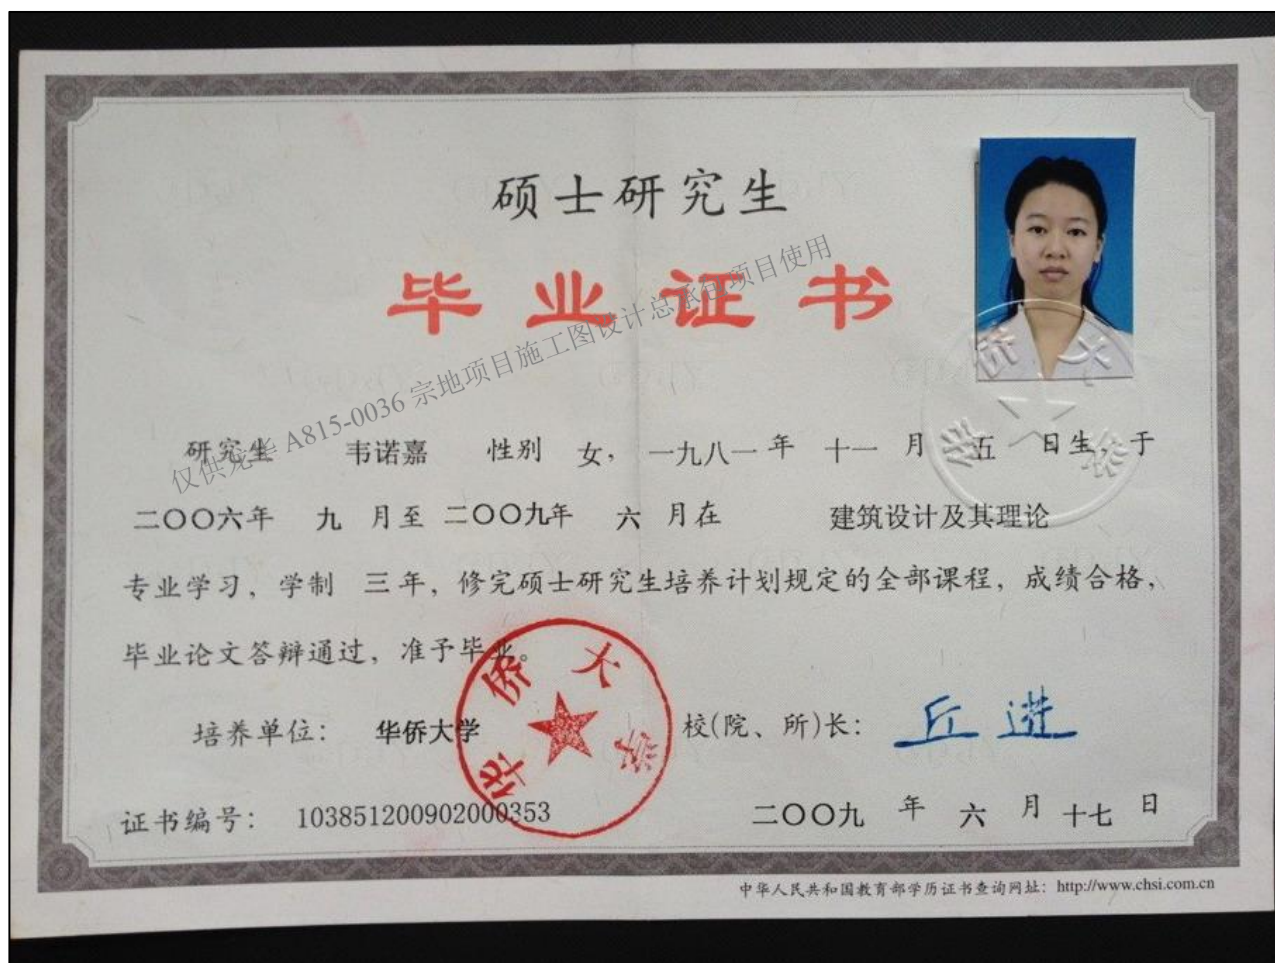 硕士研究生
毕业证书
仅供龙华 A815-0036 宗地项目施工图设计总承包项目使用
研究生 韦诺嘉 性别 女， 一九八一 年 十一 月 五 日生 于
二〇〇六年 九 月至 二〇〇九年 六 月在 建筑设计及其理论
专业学习，学制 三年，修完硕士研究生培养计划规定的全部课程，成绩合格，
毕业论文答辩通过，准予毕业。
华侨大学
华侨大学
培养单位： 华侨大学 校(院、所)长： 丘进
证书编号： 103851200902000353 二〇〇九 年 六 月 十七 日
中华人民共和国教育部学历证书查询网址：http://www.chsi.com.cn